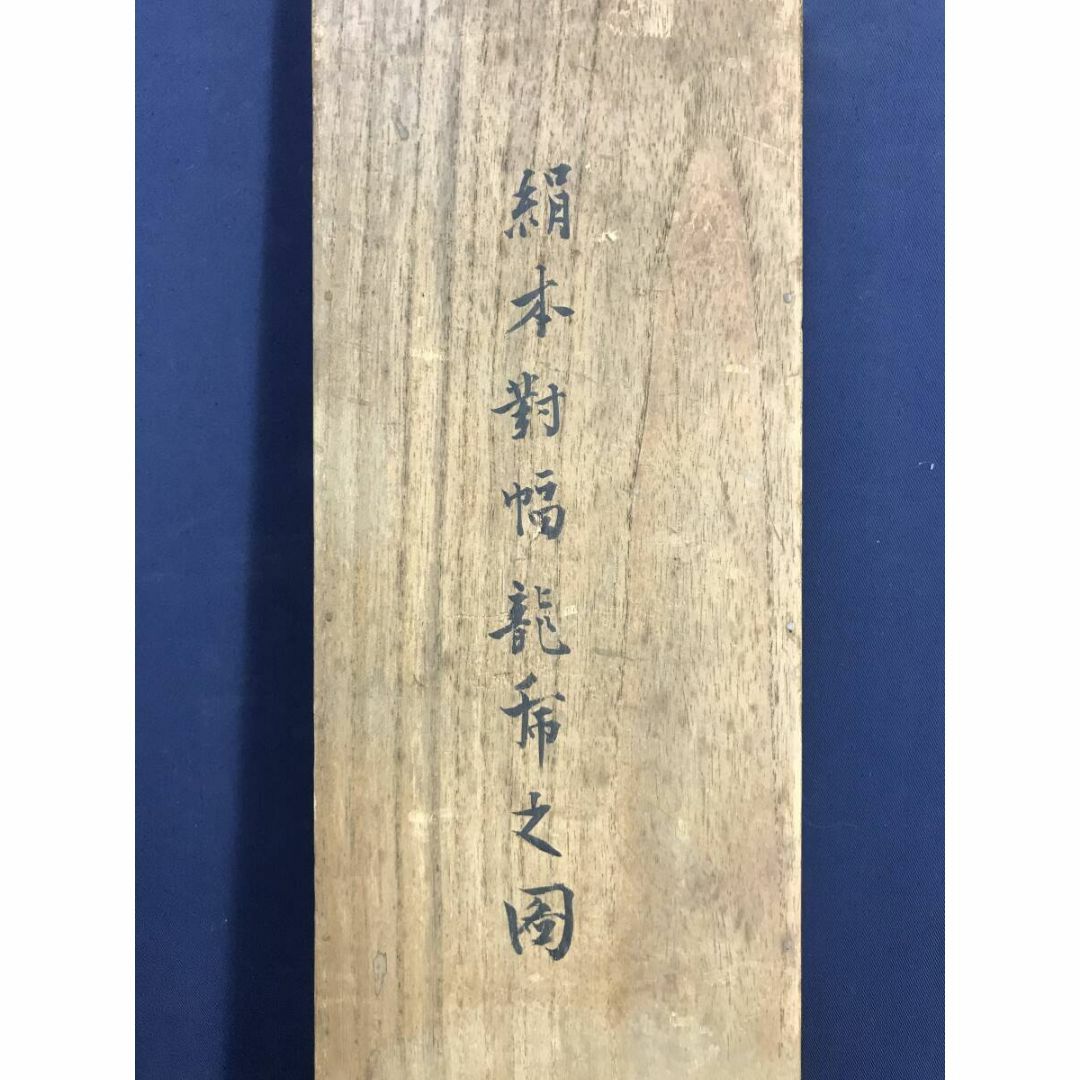 絹本對幅龍虎之図